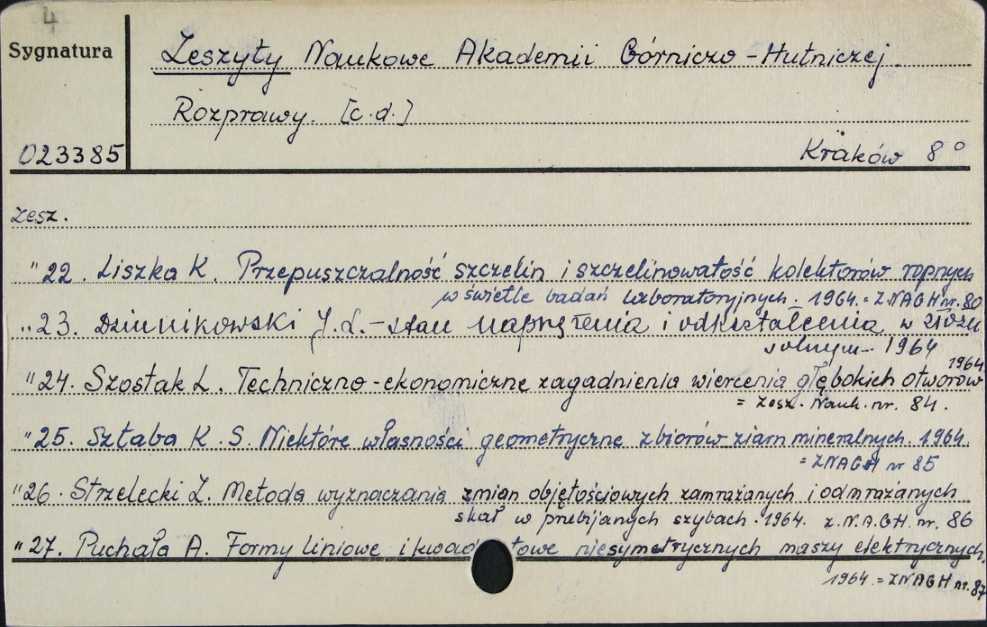 4
Sygnatura
Zeszyty Naukowe Akademii Górniczo-Hutniczej.
Rozprawy. [c.d.]
023385
Kraków 8°
zesz.
"22. Liszka K. Przepuszczalność szczelin i szczelinowatość kolektorów ropnych
w świetle badań laboratoryjnych. 1964. = ZNAGH nr. 80
"23. Dziunikowski J.L. - Stan naprężenia i odkształcenia w złożu
solnym - 1964
"24. Szostak L. Techniczno-ekonomiczne zagadnienia wiercenia głębokich otworów
1964.
= Zesz. Nauk. nr. 84.
"25. Sztaba K. S. Niektóre własności geometryczne zbiorów ziarn mineralnych. 1964.
= ZNAGH nr 85
"26. Strzelecki Z. Metoda wyznaczania zmian objętościowych zamrażanych i odmrażanych
skał w przebijanych szybach. 1964. Z.N.A.GH. nr. 86
"27. Puchała A. Formy liniowe i kwad towe niesymetrycznych maszy elektrycznych.
1964. = ZNAGH nr. 87